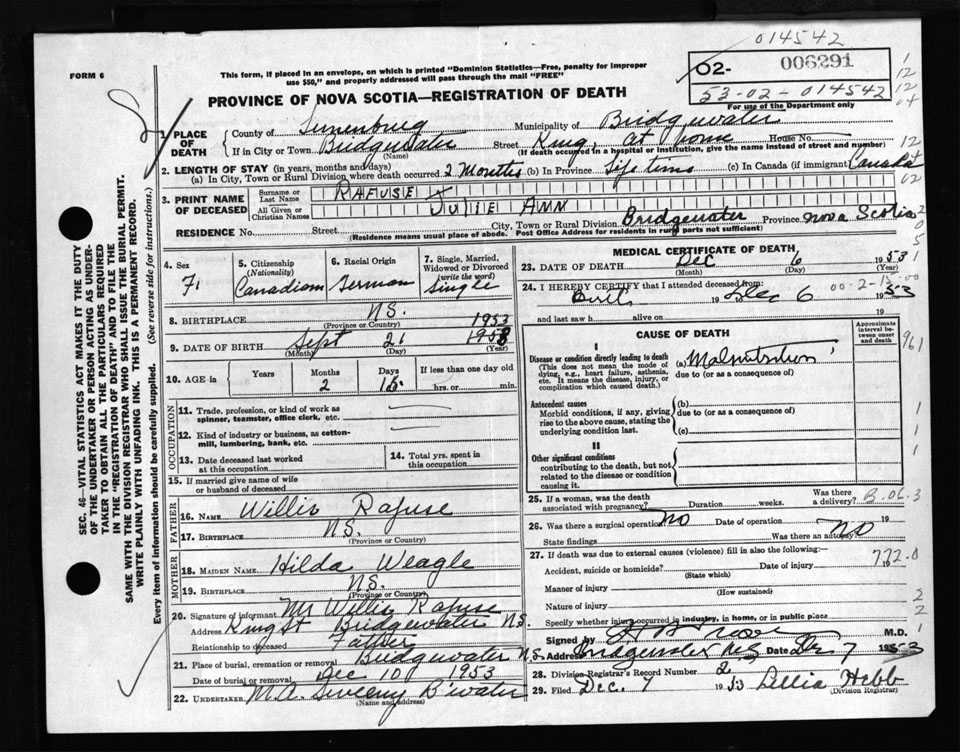 014542
FORM 6
This form, if placed in an envelope, on which is printed "Dominion Statistics—Free, penalty for improper
use $50," and properly addressed will pass through the mail "FREE"
02- 006291
53-02-014542
For use of the Department only
PROVINCE OF NOVA SCOTIA—REGISTRATION OF DEATH
1. PLACE OF DEATH
County of Lunenburg Municipality of Bridgewater
If in City or Town Bridgewater (Name) Street King, at Home House No.
(If death occurred in a hospital or institution, give the name instead of street and number)
2. LENGTH OF STAY (in years, months and days)
(a) In City, Town or Rural Division where death occurred 2 Months (b) In Province Life time (c) In Canada (if immigrant) Canada
3. PRINT NAME OF DECEASED
Surname or Last Name RAFUSE
All Given or Christian Names JULIE ANN
RESIDENCE No. Street City, Town or Rural Division Bridgewater Province Nova Scotia
(Residence means usual place of abode. Post Office Address for residents in rural parts not sufficient)
4. Sex F.
5. Citizenship (Nationality) Canadian
6. Racial Origin German
7. Single, Married, Widowed or Divorced (write the word) Single
8. BIRTHPLACE N.S.
(Province or Country)
1953
9. DATE OF BIRTH Sept 21 1953
(Month) (Day) (Year)
10. AGE in Years Months 2 Days 15 If less than one day old
hrs. or min.
OCCUPATION
11. Trade, profession, or kind of work as
spinner, teamster, office clerk, etc.
12. Kind of industry or business, as cotton-
mill, lumbering, bank, etc.
13. Date deceased last worked
at this occupation
14. Total yrs. spent in
this occupation
15. If married give name of wife
or husband of deceased
FATHER
16. NAME Willis Rafuse
17. BIRTHPLACE N.S.
(Province or Country)
MOTHER
18. MAIDEN NAME Hilda Weagle
19. BIRTHPLACE N.S.
(Province or Country)
20. Signature of informant Mr Willis Rafuse
Address King St Bridgewater N.S.
Relationship to deceased Father
21. Place of burial, cremation or removal Bridgewater N.S.
Date of burial or removal Dec 10 1953
22. UNDERTAKER M.A. Sweeny B'water
(Name and address)
MEDICAL CERTIFICATE OF DEATH
23. DATE OF DEATH Dec 6 1953
(Month) (Day) (Year)
24. I HEREBY CERTIFY that I attended deceased from:
Birth 19 to Dec 6 1953
00-2-15-00
and last saw h alive on 19
CAUSE OF DEATH
Approximate interval between onset and death
I
Disease or condition directly leading to death
(This does not mean the mode of
dying, e.g., heart failure, asthenia,
etc. It means the disease, injury, or
complication which caused death.)
(a) Malnutrition
due to (or as a consequence of)
Antecedent causes
Morbid conditions, if any, giving
rise to the above cause, stating the
underlying condition last.
(b)
due to (or as a consequence of)
(c)
II
Other significant conditions
contributing to the death, but not
related to the disease or condition
causing it.
25. If a woman, was the death
associated with pregnancy? Duration weeks. Was there a delivery? B.06.3
26. Was there a surgical operation No Date of operation 19
State findings Was there an autopsy? No
27. If death was due to external causes (violence) fill in also the following:—
772.0
Accident, suicide or homicide? Date of injury 19
(State which)
Manner of injury
(How sustained)
Nature of injury
Specify whether injury occurred in industry, in home, or in public place
Signed by M.D.
Address Bridgewater N.S. Date Dec 7 1953
28. Division Registrar's Record Number 2
29. Filed Dec. 7 1953 Lellia Hebb
(Division Registrar)
SEC. 46—VITAL STATISTICS ACT MAKES IT THE DUTY
OF THE UNDERTAKER OR PERSON ACTING AS UNDER-
TAKER TO OBTAIN ALL THE PARTICULARS REQUIRED
IN THE "REGISTRATION OF DEATH" AND TO FILE THE
SAME WITH THE DIVISION REGISTRAR WHO SHALL ISSUE THE BURIAL PERMIT.
WRITE PLAINLY WITH UNFADING INK. THIS IS A PERMANENT RECORD.
Every item of information should be carefully supplied. (See reverse side for instructions.)